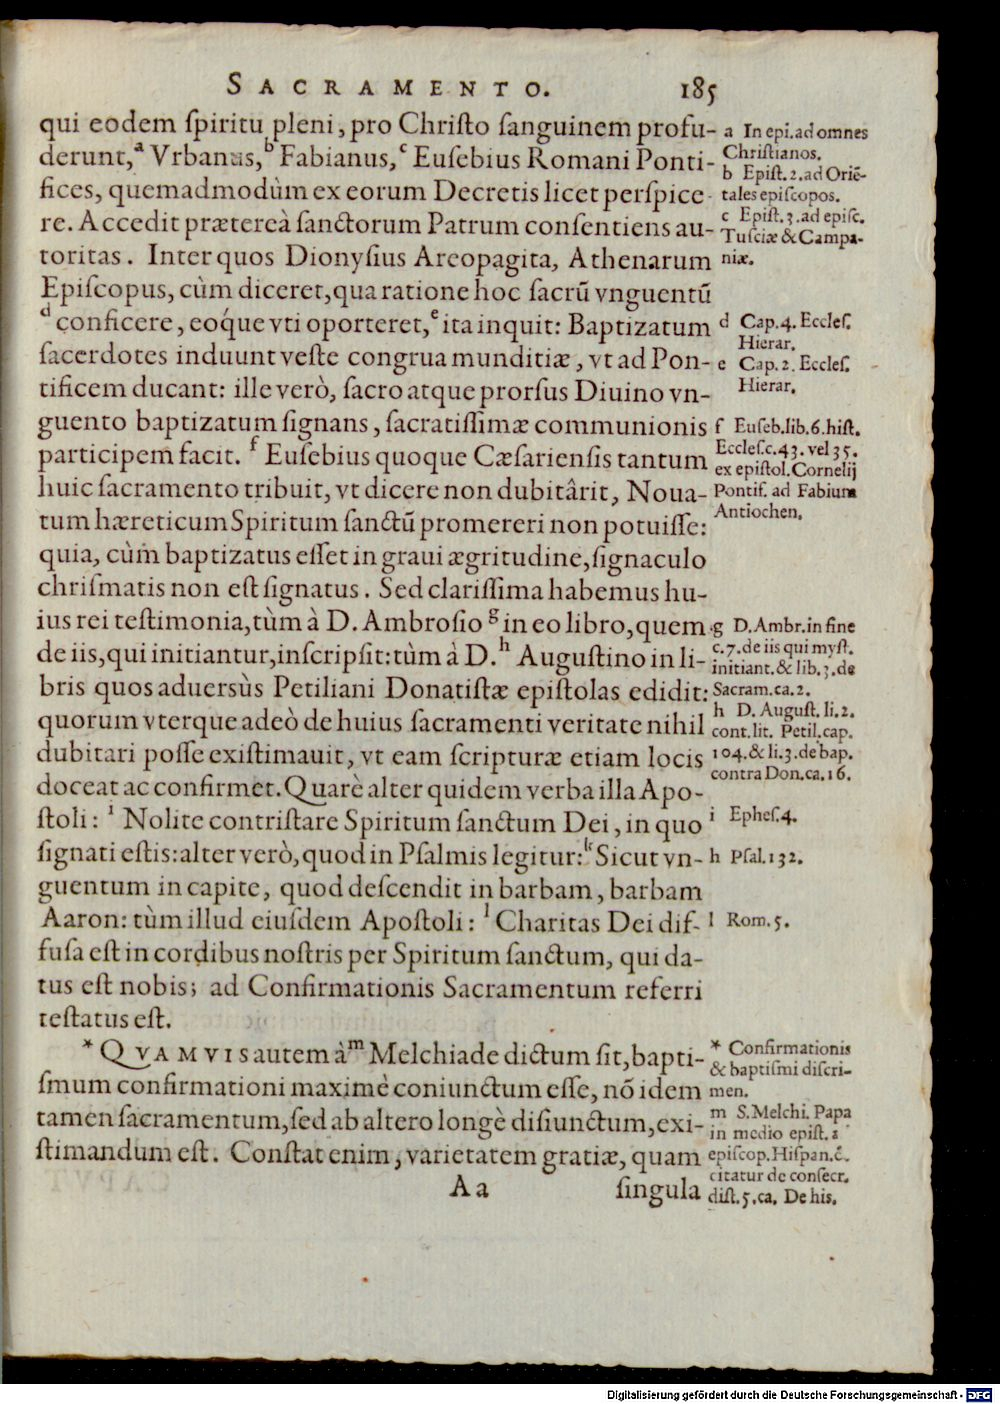 SACRAMENTO. 185
qui eodem ſpiritu pleni, pro Chriſto ſanguinem profu-
derunt,ᵃ Vrbanus,ᵇ Fabianus,ᶜ Euſebius Romani Ponti-
fices, quemadmodùm ex eorum Decretis licet perſpice-
re. Accedit prætereà ſanctorum Patrum conſentiens au-
toritas. Inter quos Dionyſius Areopagita, Athenarum
Epiſcopus, cùm diceret, qua ratione hoc ſacrũ vnguentũ
ᵈ conficere, eoq́ue vti oporteret,ᵉ ita inquit: Baptizatum
ſacerdotes induunt veſte congrua munditiæ, vt ad Pon-
tificem ducant: ille verò, ſacro atque prorſus Diuino vn-
guento baptizatum ſignans, ſacratiſſimæ communionis
participem facit. ᶠ Euſebius quoque Cæſarienſis tantum
huic ſacramento tribuit, vt dicere non dubitârit, Noua-
tum hæreticum Spiritum ſanctũ promereri non potuiſſe:
quia, cùm baptizatus eſſet in graui ægritudine, ſignaculo
chriſmatis non eſt ſignatus. Sed clariſſima habemus hu-
ius rei teſtimonia, tùm à D. Ambroſio ᵍ in eo libro, quem
de iis, qui initiantur, inſcripſit: tùm à D. ʰ Auguſtino in li-
bris quos aduersùs Petiliani Donatiſtæ epiſtolas edidit:
quorum vterque adeò de huius ſacramenti veritate nihil
dubitari poſſe exiſtimauit, vt eam ſcripturæ etiam locis
doceat ac confirmet. Quarè alter quidem verba illa Apo-
ſtoli: ⁱ Nolite contriſtare Spiritum ſanctum Dei, in quo
ſignati eſtis: alter verò, quod in Pſalmis legitur: ᵏ Sicut vn-
guentum in capite, quod deſcendit in barbam, barbam
Aaron: tùm illud eiuſdem Apoſtoli: ˡ Charitas Dei dif-
fuſa eſt in cordibus noſtris per Spiritum ſanctum, qui da-
tus eſt nobis; ad Confirmationis Sacramentum referri
teſtatus eſt.
* QVAMVIS autem à ᵐ Melchiade dictum ſit, bapti-
ſmum confirmationi maximè coniunctum eſſe, nõ idem
tamen ſacramentum, ſed ab altero longè diſiunctum, exi-
ſtimandum eſt. Conſtat enim, varietatem gratiæ, quam
Aa ſingula
a In epi. ad omnes
Chriſtianos.
b Epiſt. 2. ad Oriẽ-
tales epiſcopos.
c Epiſt. 3. ad epiſc.
Tuſciæ & Campa-
niæ.
d Cap. 4. Eccleſ.
Hierar.
e Cap. 2. Eccleſ.
Hierar.
f Euſeb. lib. 6. hiſt.
Eccleſ. c. 43. vel 35.
ex epiſtol. Cornelij
Pontif. ad Fabium
Antiochen.
g D. Ambr. in fine
c. 7. de iis qui myſt.
initiant. & lib. 3. de
Sacram. ca. 2.
h D. Auguſt. li. 2.
cont. lit. Petil. cap.
104. & li. 3. de bap.
contra Don. ca. 16.
i Epheſ. 4.
h Pſal. 132.
l Rom. 5.
* Confirmationis
& baptiſmi diſcri-
men.
m S. Melchi. Papa
in medio epiſt. 2
epiſcop. Hiſpan. &.
citatur de conſecr.
diſt. 5. ca. De his.
Digitalisierung gefördert durch die Deutsche Forschungsgemeinschaft - DFG